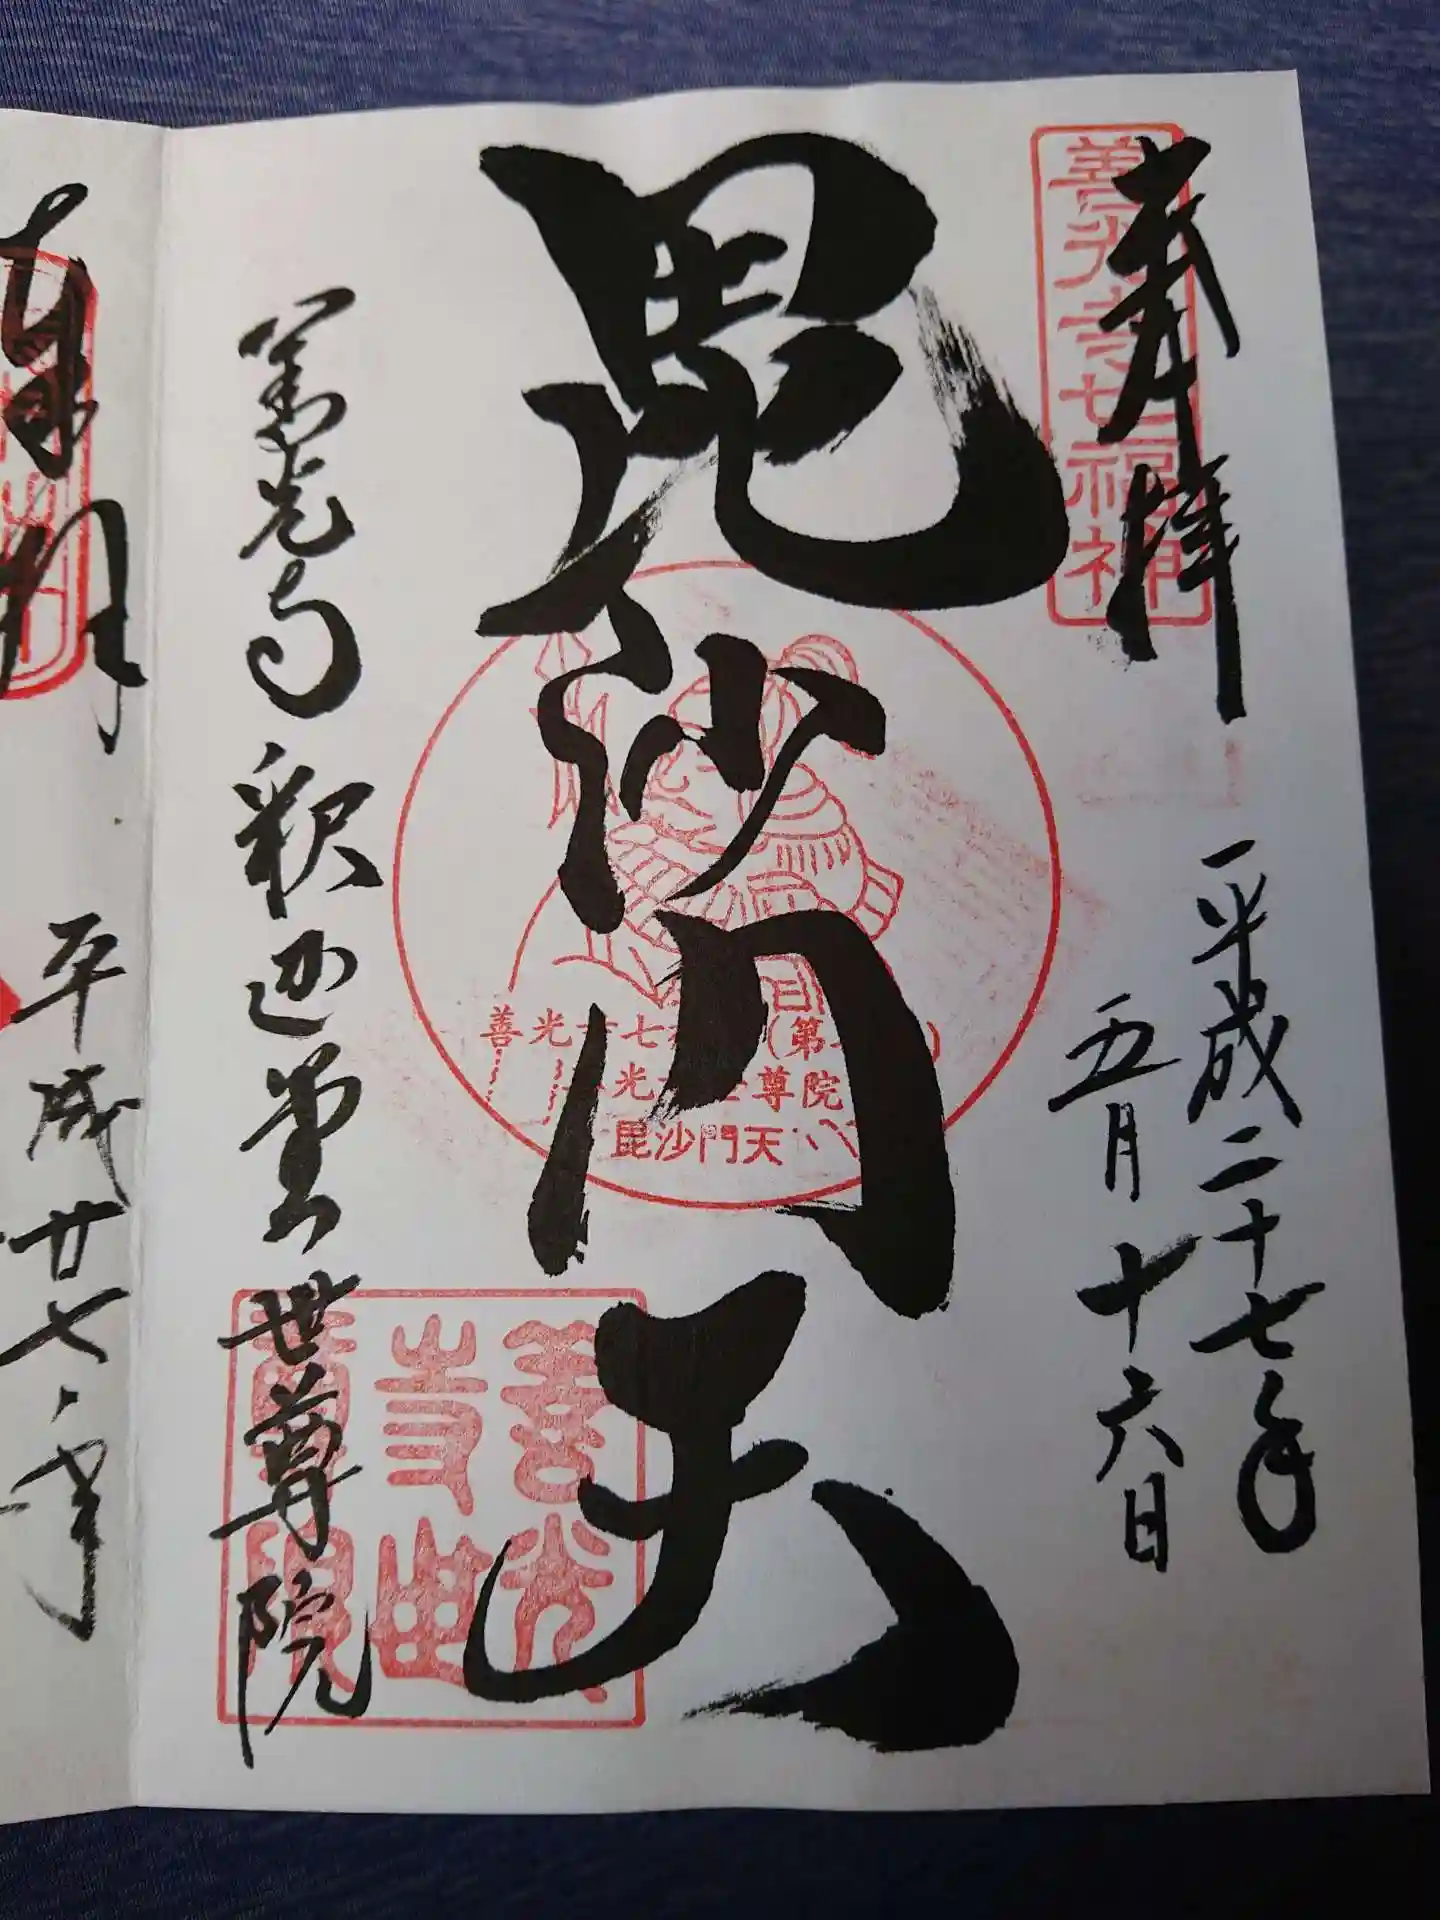 奉拝
善光寺七福神
平成二十七年
五月十六日
毘沙門天
善光寺七
(第
光
尊院
毘沙門天
善光寺釈迦堂世尊院
善光
寺世
尊院
平成廿七年